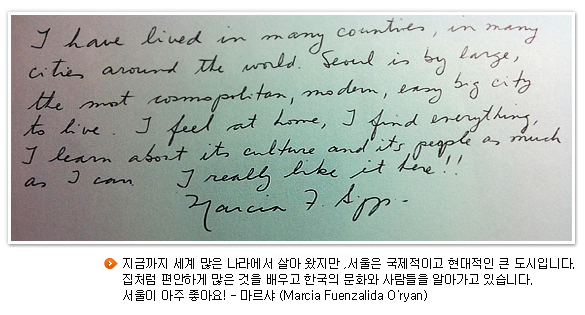 I have lived in many countries, in many
cities around the world. Seoul is by large,
the most cosmopolitan, modern, easy big city
to live. I feel at home, I find everything,
I learn about its culture and its people as much
as I can I really like it here!!
Marcia F.
지금까지 세계 많은 나라에서 살아 왔지만 ,서울은 국제적이고 현대적인 큰 도시입니다.
집처럼 편안하게 많은 것을 배우고 한국의 문화와 사람들을 알아가고 있습니다.
서울이 아주 좋아요! - 마르샤 (Marcia Fuenzalida O'ryan)